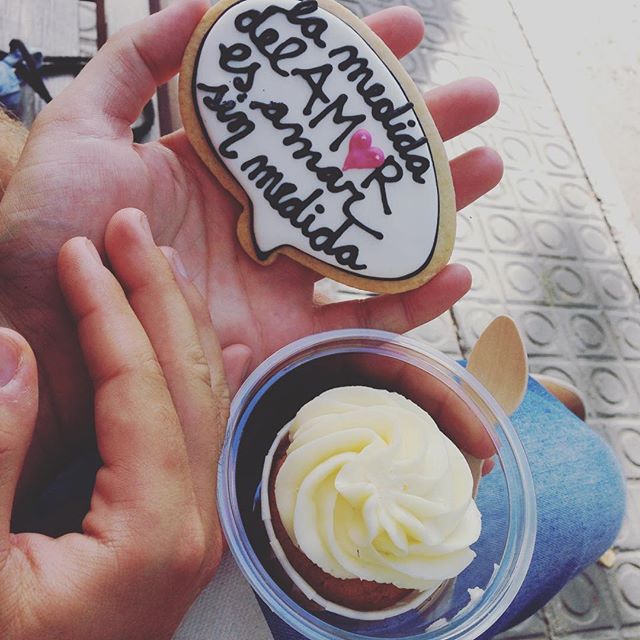 la medida
del AMOR
es amar
sin medida